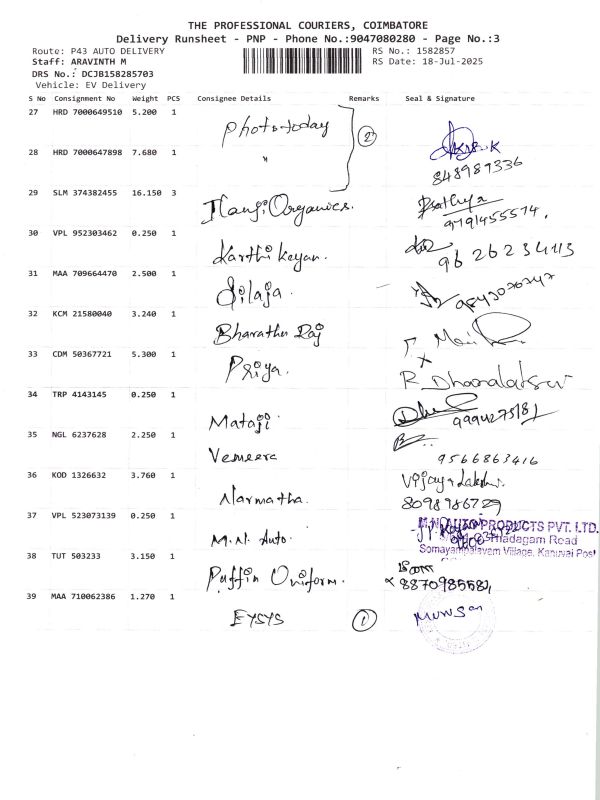 THE PROFESSIONAL COURIERS, COIMBATORE
Delivery Runsheet - PNP - Phone No.:9047080280 - Page No.:3
Route: P43 AUTO DELIVERY
RS No.: 1582857
Staff: ARAVINTH M
RS Date: 18-Jul-2025
DRS No.: DCJB158285703
Vehicle: EV Delivery
S No Consignment No Weight PCS Consignee Details Remarks Seal & Signature
27 HRD 7000649510 5.200 1 Phototoday 2
28 HRD 7000647898 7.680 1 "
848989336
29 SLM 374382455 16.150 3 Ilangi Organics.
Prathya
9791455574.
30 VPL 952303462 0.250 1 Karthikeyan.
9626234113
31 MAA 709664470 2.500 1 Silaja.
32 KCM 21580040 3.240 1 Bharathu Raj
33 CDM 50367721 5.300 1 Priya.
34 TRP 4143145 0.250 1 Mataji
9994275181
35 NGL 6237628 2.250 1 Vemeera
9566863416
36 KOD 1326632 3.760 1 Narmatha.
8098986729
37 VPL 523073139 0.250 1 M.N. Auto.
M.N. AUTO PRODUCTS PVT. LTD.
Thadagam Road
Somayampalavem Village, Kanuvai Post
38 TUT 503233 3.150 1 Puffin Uniform.
39 MAA 710062386 1.270 1 EYSYS 1